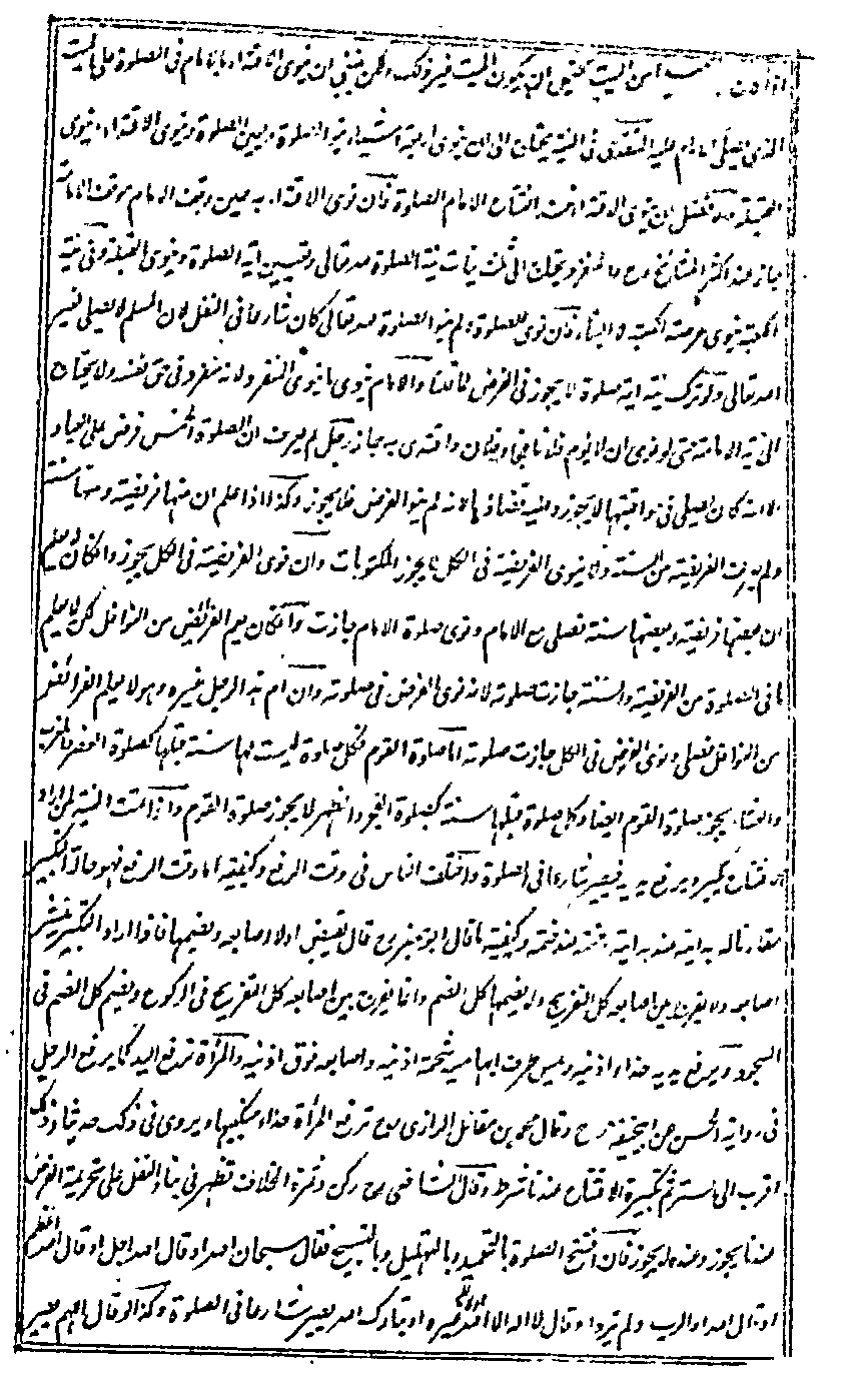 من الميت يحتمل ان يكون الميت غير ذلك ولكن ينبغي ان ينوى الاقتداء بالامام فى الصلوة على الميت
الذى يصلى الامام عليه المقتدى فى النية يحتاج الى ان ينوى اربعة اشياء نية الصلوة وتعيين الصلوة وينوى الاقتداء وينوى
القبلة والافضل ان ينوى الاقتداء عند افتتاح الامام الصلوة فان نوى الاقتداء به حين وقف الامام موقف الامامة
جاز عند اكثر المشايخ رح والمنفرد يحتاج الى ثلث نيات نية الصلوة لله تعالى وتعيين اية الصلوة وينوى القبلة وفى نية
الكعبة ينوى عرصة الكعبة لا البناء فان نوى الصلوة ولم ينو الصلوة لله تعالى كان شارعا فى النفل لان المسلم لا يصلى لغير
الله تعالى ولو ترك نية اية صلوة لا يجوز فى الفرض لما قلنا والامام ينوى ما ينوى المنفرد لانه منفرد فى حق نفسه ولا يحتاج
الى نية الامامة حتى لو نوى ان لا يؤم فلانا فجاء فلان واقتدى به جاز رجل لم يعرف ان الصلوة الخمس فرض على العباد
الا انه كان يصلى فى مواقيتها لا يجوز وعليه قضاؤها لانه لم ينو الفرض فلا يجوز وكذا اذا علم ان منها فريضة ومنها سنة
ولم يعرف الفريضة من السنة ولا ينوى الفريضة فى الكل لا يجوز المكتوبات وان نوى الفريضة فى الكل يجوز وان كان لا يعلم
ان بعضها فريضة وبعضها سنة فصلى مع الامام ونوى صلوة الامام جازت وان كان يعلم الفرائض من النوافل لكن لا يعلم
ما فى الصلوة من الفريضة والسنة جازت صلوته لانه نوى الفرض فى صلوته وان ام هذا الرجل غيره وهو لا يعلم الفرائض
من النوافل فصلى ونوى الفرض فى الكل جازت صلوته اما صلوة القوم فكل صلوة ليست لها سنة قبلها كصلوة العصر والمغرب
والعشاء يجوز صلوة القوم ايضا وكل صلوة قبلها سنة كصلوة الفجر والظهر لا يجوز صلوة القوم واذا تمت النية لمن اراد
الافتتاح يكبر ويرفع يديه فيصير شارعا فى الصلوة واختلف الناس فى وقت الرفع وكيفيته اما وقت الرفع فهو حالة التكبير
مقارنا له بدايته عند بدايته وختمه عند ختمه وكيفيته ما قال ابو جعفر رح قال يقبض اولا اصابعه ويضمها فاذا اراد التكبير ينشر
اصابعه ولا يفرج بين اصابعه كل التفريج ولا يضمها كل الضم وانما يفرج بين اصابعه كل التفريج فى الركوع ويضم كل الضم فى
السجود ويرفع يديه حذاء اذنيه ويمس طرف ابهاميه شحمة اذنيه واصابعه فوق اذنيه والمرأة ترفع اليد كما يرفع الرجل
فى رواية الحسن عن ابى حنيفة رح وقال محمد بن مقاتل الرازى رح ترفع المرأة حذاء منكبيها ويروى فى ذلك حديثا وذلك
اقرب الى الستر ثم تكبيرة الافتتاح عندنا شرط وقال الشافعى رح ركن وثمرة الخلاف تظهر فى بناء النفل على تحريمة الفرض
عندنا يجوز وعنده لا يجوز فان افتتح الصلوة بالتحميد وبالتهليل وبالتسبيح فقال سبحان الله او قال الله اجل او قال الله اعظم
او قال الله او الرب ولم يزد او قال لا اله الا الله غيره او تبارك الله يصير شارعا فى الصلوة وكذا لو قال اللهم يصير